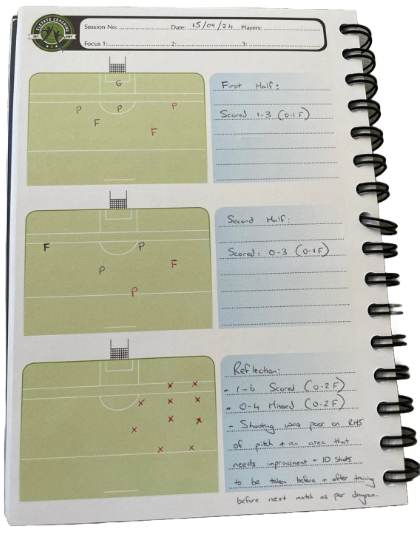 Session No: Date: 15/04/24 Players:
Focus 1: 2: 3:
G
P P P
F F
First Half:
Scored 1-3 (0-1F)
F P
P F
P
Second Half:
Scored: 0-3 (0-1F)
x x
x x x
x x
x
x x
Reflection:
- 1-6 Scored (0-2F)
- 0-4 Missed (0-2F)
- Shooting was poor on RHS
of pitch + an area that
needs improvement - 10 shots
to be taken before + after training
before next match as per diagram.